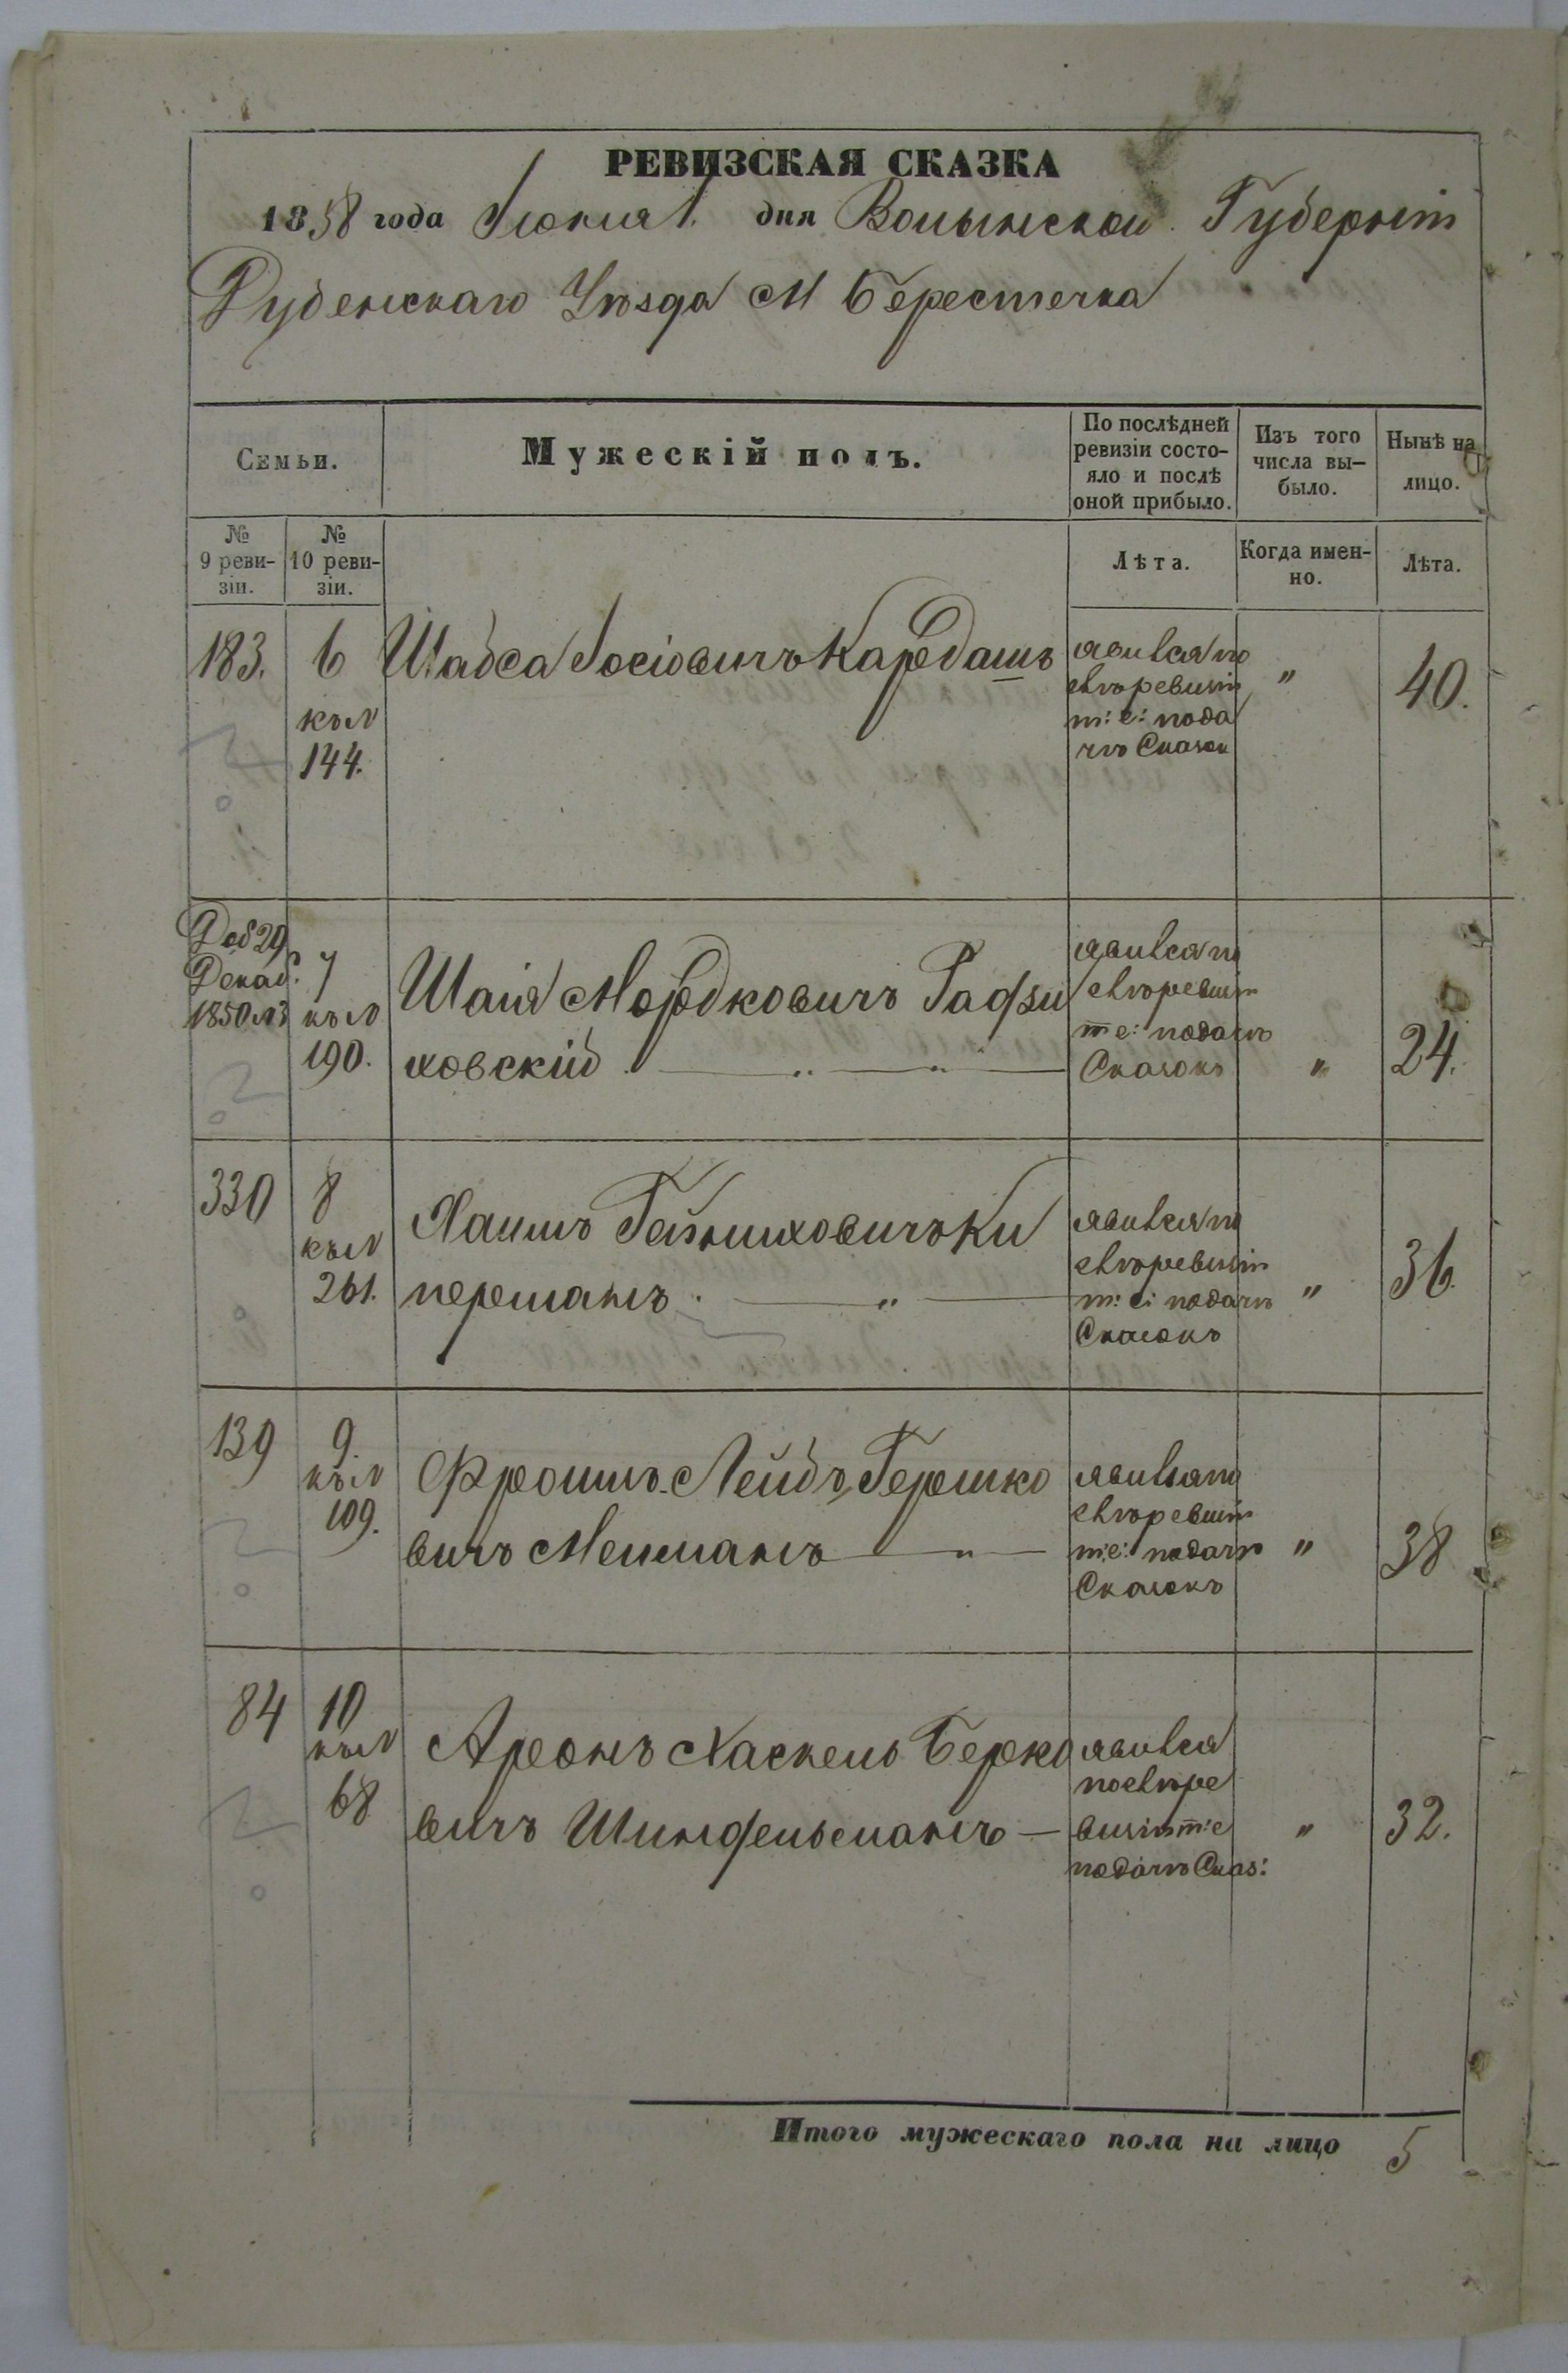 РЕВИЗСКАЯ СКАЗКА
1858 года Іюния 1. дня Волынской Губерніи
Дубенскаго Уѣзда М Берестечка
Семьи.
Мужескій полъ.
По послѣдней
ревизіи состо-
яло и послѣ
оной прибыло.
Изъ того
числа вы-
было.
Нынѣ на
лицо.
№
9 реви-
зіи.
№
10 реви-
зіи.
Лѣта.
Когда имен-
но.
Лѣта.
183. 6 Шабса Іосіовичъ Кардашъ явился по " 40.
къ №
144.
слѣ ревизіи
т: е: пода
чѣ Сказок
Доб 29
Декаб:
1850 №3
7
къ №
190.
Шаія Мордковичъ Радзи
ховскій
явился по
слѣ ревизіи
т е: подачѣ
Сказокъ " 24.
330 8
къ №
261.
Хаимъ Гейниховичъ Ки
перманъ "
явился по
слѣ ревизіи
т: е: подачѣ " 36.
Сказокъ
139 9.
къ №
109.
Фроимъ Лейбъ Гершко
вичъ Мельманъ "
явился по
слѣ ревизіи
т: е: подачѣ " 38
Сказокъ
84 10
къ №
68
Аронъ Хаскель Берко
вичъ Шиндельманъ
явился
послѣ ре
визіи т: е " 32.
подачѣ Сказ:
Итого мужескаго пола на лицо 5